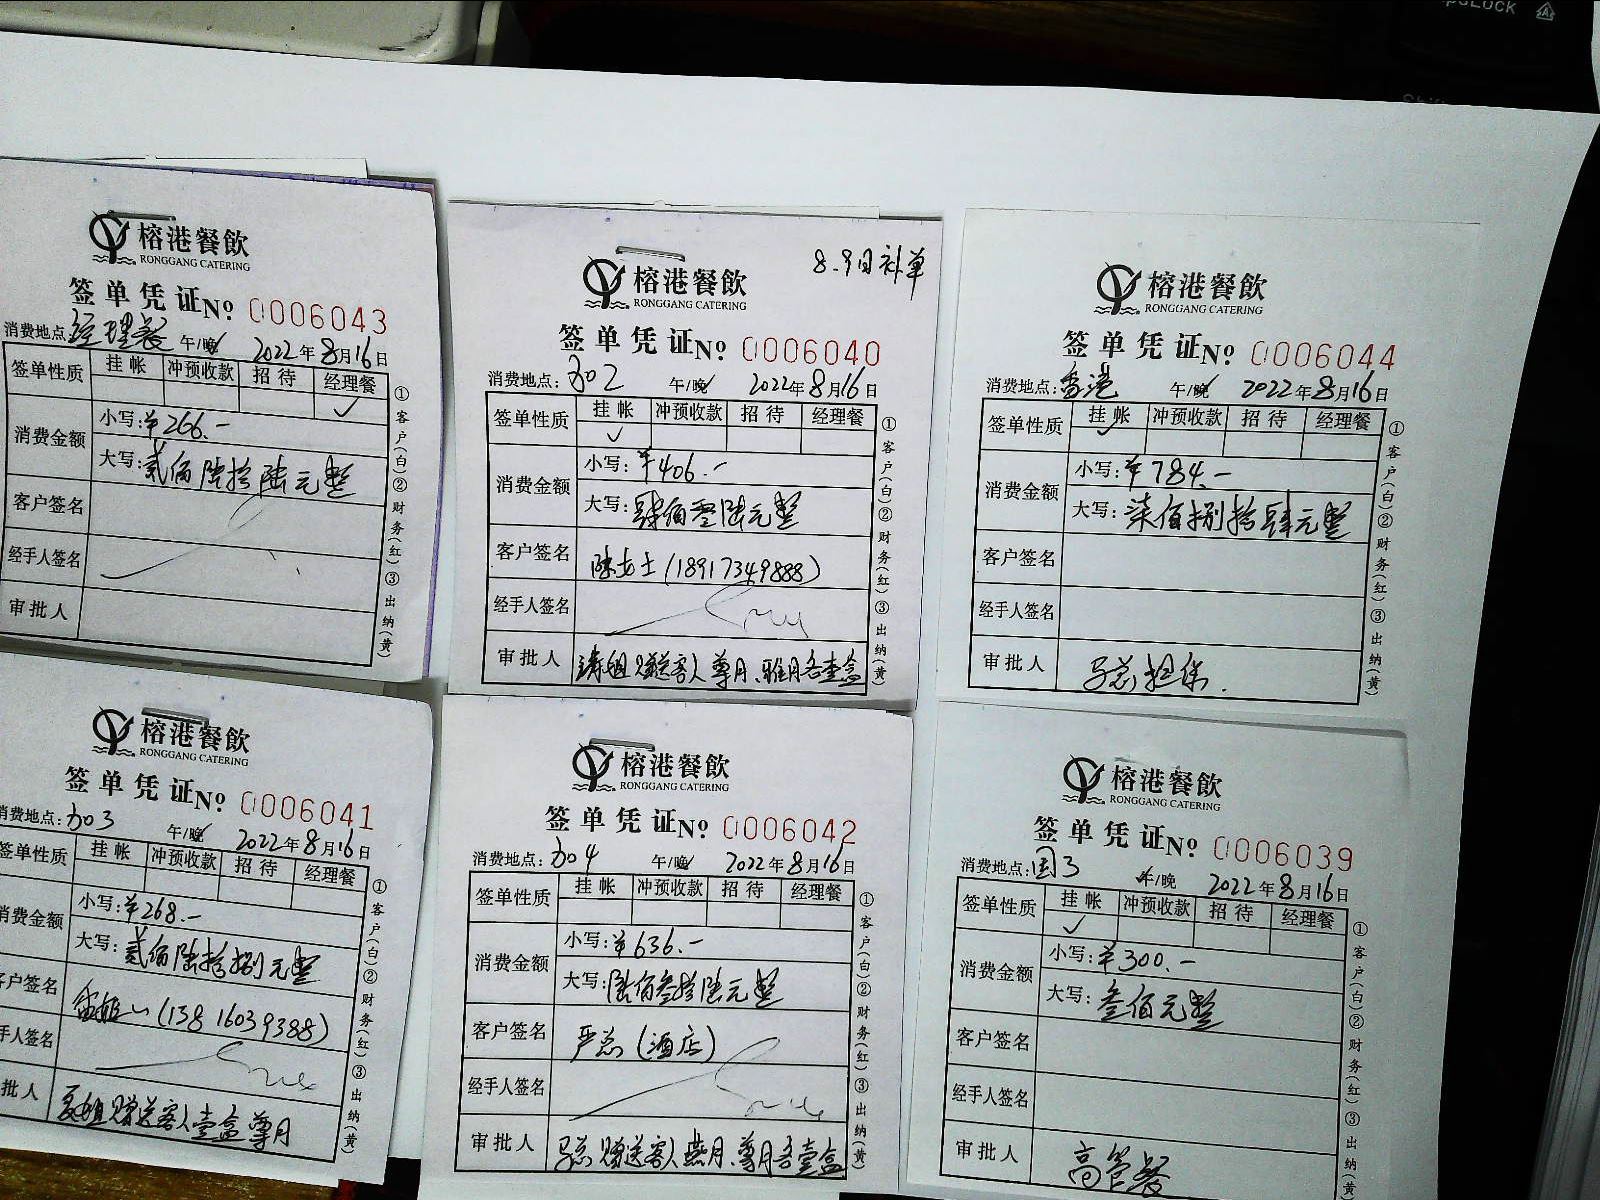 psLock
榕港餐飲
RONGGANG CATERING
签单凭证 № 0006043
消费地点:经理餐 午/晚 2022年8月16日
签单性质 挂帐 冲预收款 招待 经理餐
✓
消费金额 小写:¥266.-
大写:贰佰陆拾陆元整
客户签名
经手人签名
审批人
①客户(白)②财务(红)③出纳(黄)
8.9日补单
榕港餐飲
RONGGANG CATERING
签单凭证 № 0006040
消费地点:加02 午/晚 2022年8月16日
签单性质 挂帐 冲预收款 招待 经理餐
✓
消费金额 小写:¥406.-
大写:肆佰零陆元整
客户签名 陈女士(18917349888)
经手人签名
审批人 涛姐赠送客人尊月、雅月各壹盒
①客户(白)②财务(红)③出纳(黄)
榕港餐飲
RONGGANG CATERING
签单凭证 № 0006044
消费地点:香港 午/晚 2022年8月16日
签单性质 挂帐 冲预收款 招待 经理餐
✓
消费金额 小写:¥784.-
大写:柒佰捌拾肆元整
客户签名
经手人签名
审批人 马总担保.
①客户(白)②财务(红)③出纳(黄)
榕港餐飲
RONGGANG CATERING
签单凭证 № 0006041
消费地点:加03 午/晚 2022年8月16日
签单性质 挂帐 冲预收款 招待 经理餐
消费金额 小写:¥268.-
大写:贰佰陆拾捌元整
客户签名 (13816039388)
手人签名
批人 姐赠送客人壹盒尊月
①客户(白)②财务(红)③出纳(黄)
榕港餐飲
RONGGANG CATERING
签单凭证 № 0006042
消费地点:加04 午/晚 2022年8月16日
签单性质 挂帐 冲预收款 招待 经理餐
消费金额 小写:¥636.-
大写:陆佰叁拾陆元整
客户签名 严总(酒店)
经手人签名
审批人 马总赠送客人燕月、尊月各壹盒
①客户(白)②财务(红)③出纳(黄)
榕港餐飲
RONGGANG CATERING
签单凭证 № 0006039
消费地点:国3 午/晚 2022年8月16日
签单性质 挂帐 冲预收款 招待 经理餐
✓
消费金额 小写:¥300.-
大写:叁佰元整
客户签名
经手人签名
审批人 高管餐
①客户(白)②财务(红)③出纳(黄)